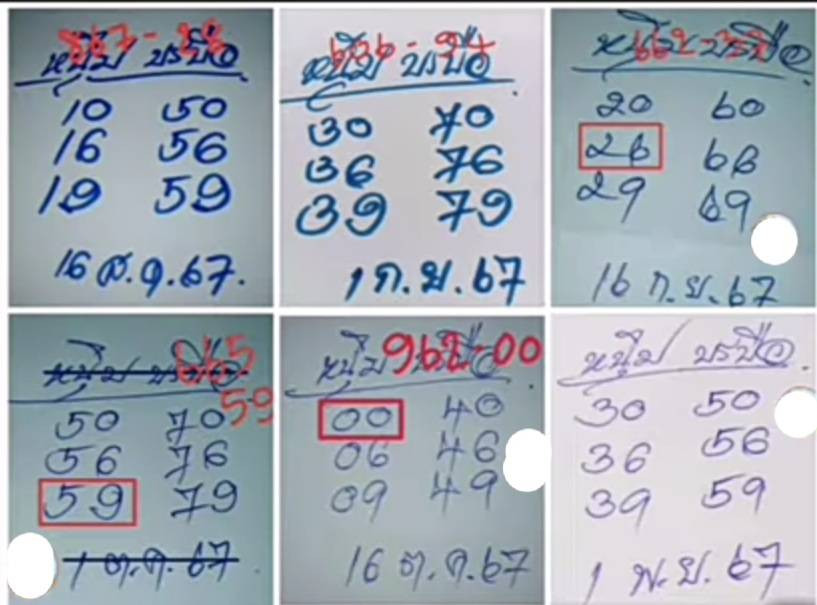 867-28
หนุ่ม บรบือ
10 50
16 56
19 59
16 ส.ค.67.
หนุ่ม บรบือ
30 70
36 76
39 79
1 ก.ย.67
หนุ่ม บรบือ
20 60
26 66
29 69
16 ก.ย.67
665
หนุ่ม บรบือ
59
50 70
56 76
59 79
1 ต.ค.67
962-00
หนุ่ม บรบือ
00 40
06 46
09 49
16 ต.ค.67
หนุ่ม บรบือ
30 50
36 56
39 59
1 พ.ย.67